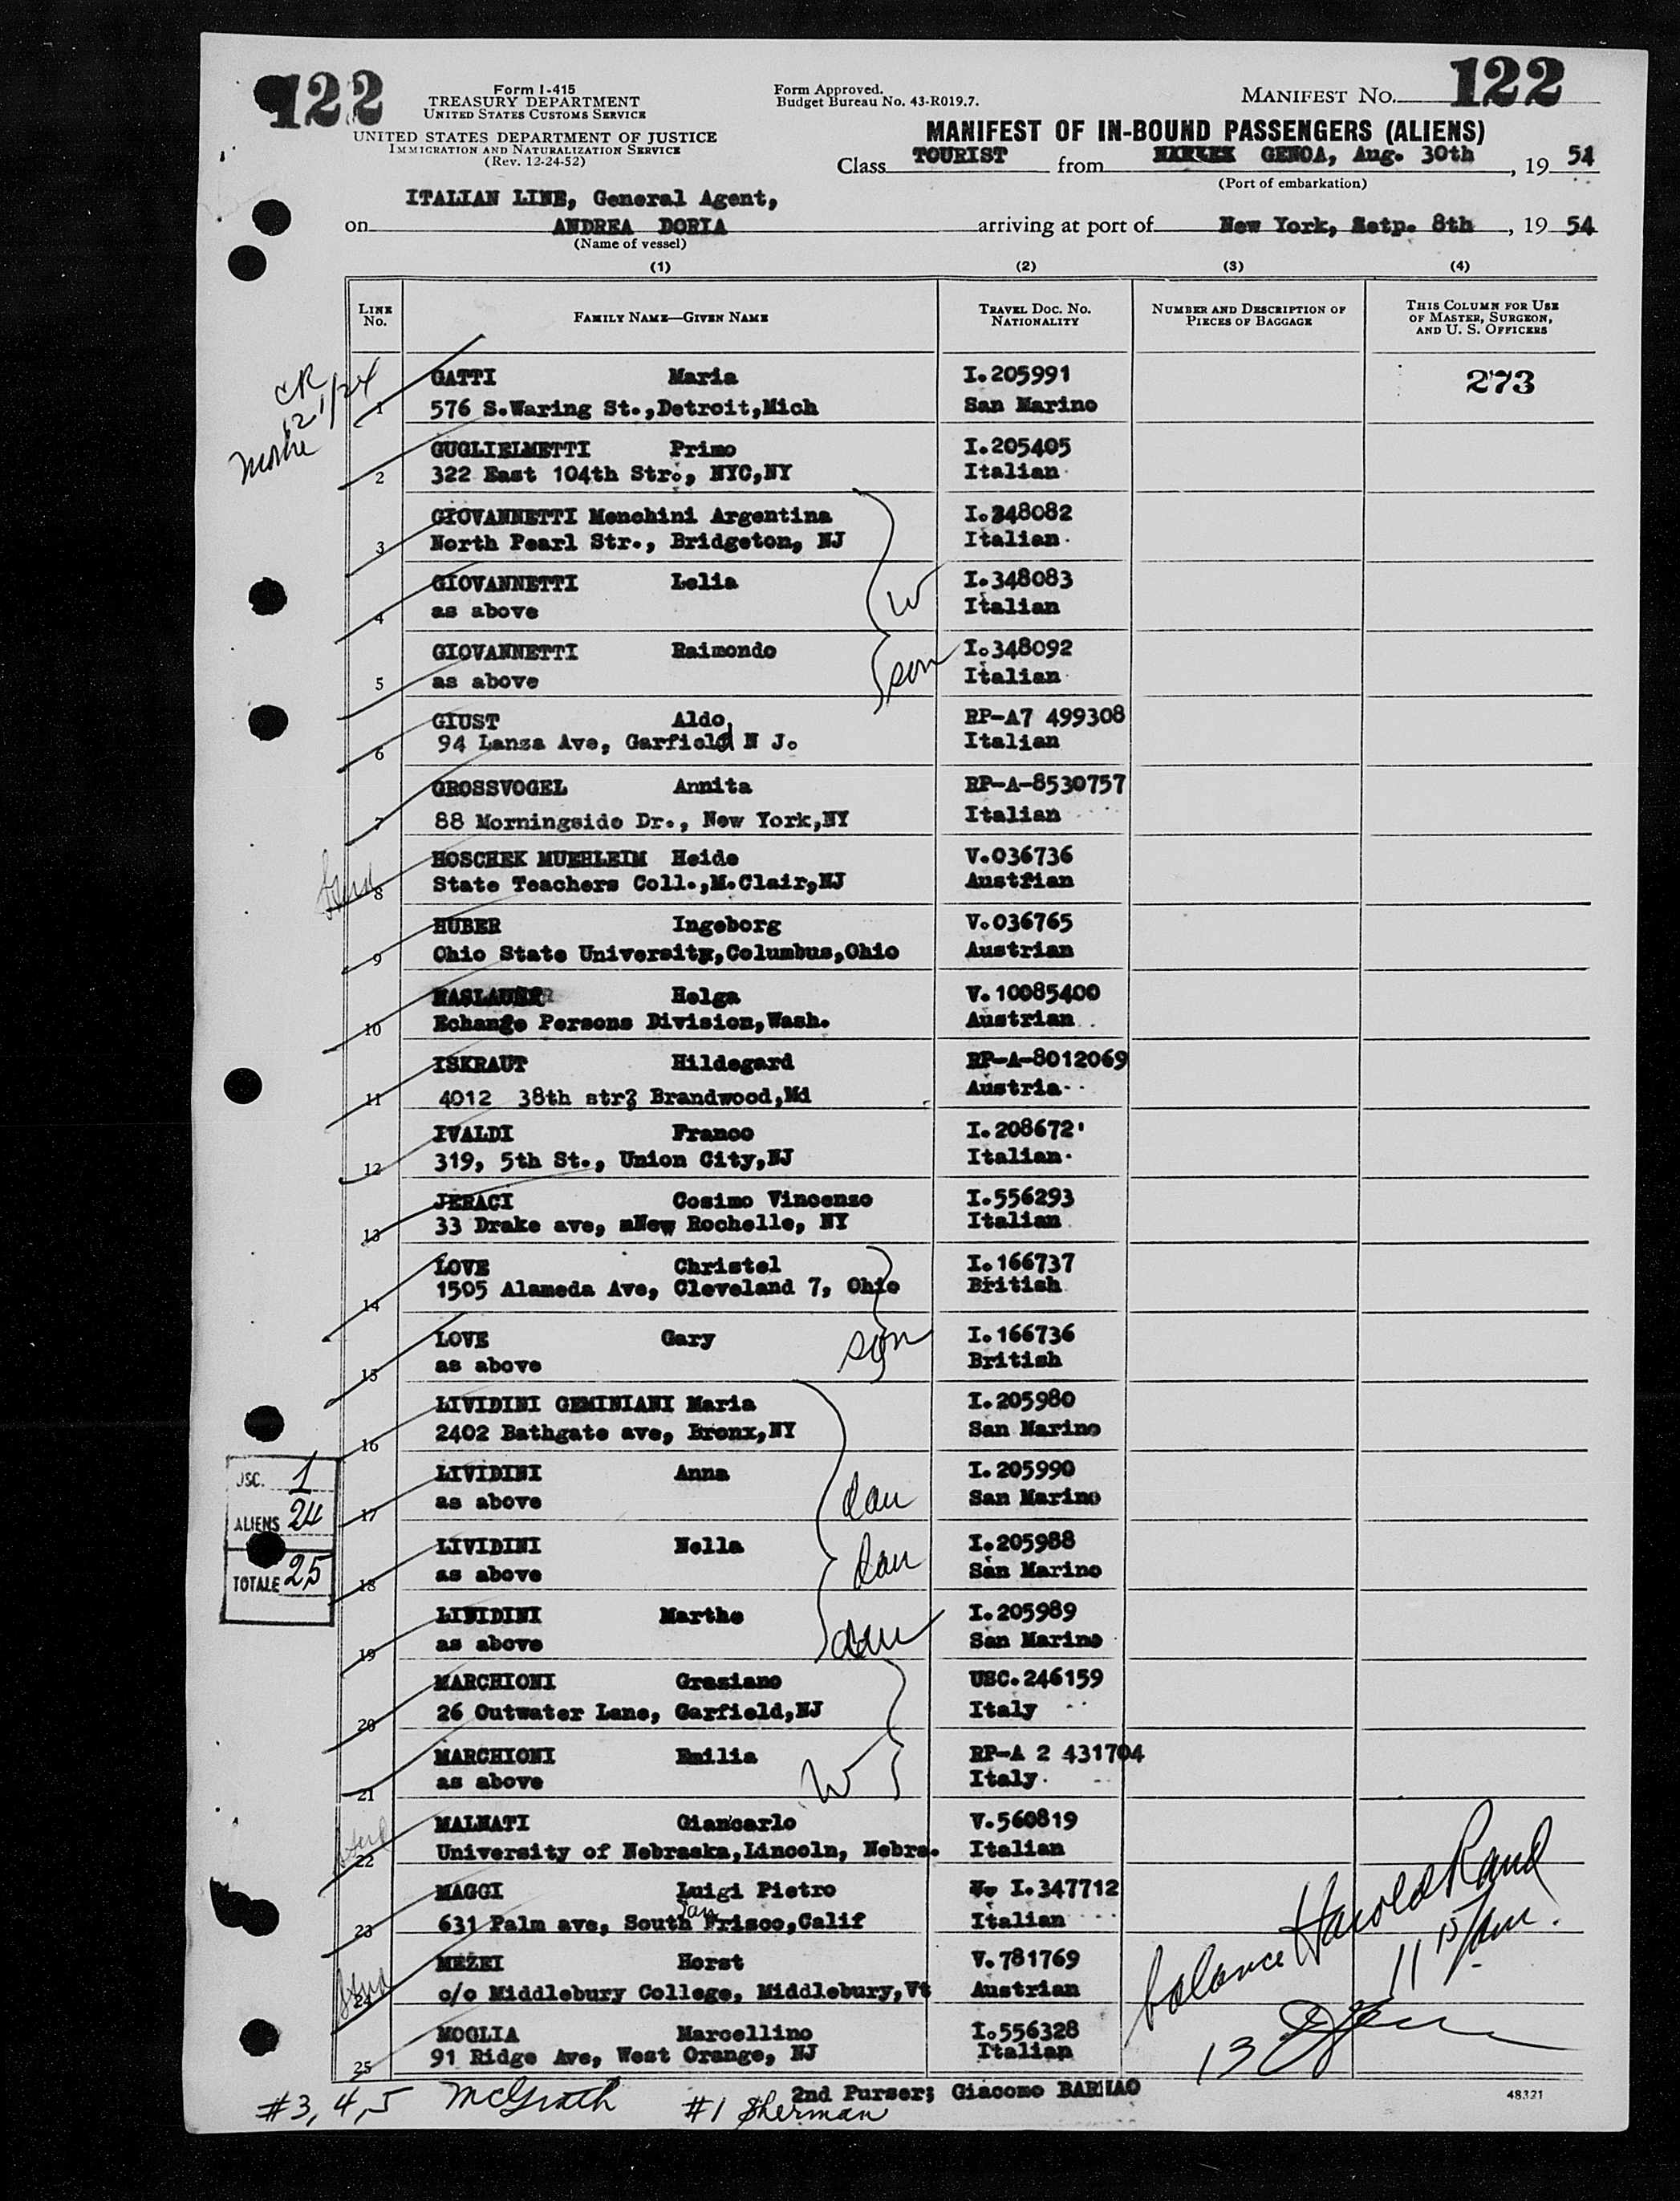 122
Form I-415
TREASURY DEPARTMENT
UNITED STATES CUSTOMS SERVICE
UNITED STATES DEPARTMENT OF JUSTICE
IMMIGRATION AND NATURALIZATION SERVICE
(Rev. 12-24-52)
Form Approved.
Budget Bureau No. 43-R019.7.
MANIFEST NO. 122
MANIFEST OF IN-BOUND PASSENGERS (ALIENS)
Class TOURIST from GENOA, Aug. 30th, 19 54
(Port of embarkation)
ITALIAN LINE, General Agent,
on ANDREA DORIA arriving at port of New York, Setp. 8th, 19 54
(Name of vessel)
(1) (2) (3) (4)
LINE No. FAMILY NAME—GIVEN NAME TRAVEL DOC. NO. NATIONALITY NUMBER AND DESCRIPTION OF PIECES OF BAGGAGE THIS COLUMN FOR USE OF MASTER, SURGEON, AND U. S. OFFICERS
GATTI Maria I.205991 273
1 576 S.Waring St.,Detroit,Mich San Marino
GUGLIELMETTI Primo I.205405
2 322 East 104th Str., NYC,NY Italian
GIOVANNETTI Menchini Argentina I.348082
3 North Pearl Str., Bridgeton, NJ Italian
GIOVANNETTI Lelia W I.348083
4 as above Italian
GIOVANNETTI Raimondo son I.348092
5 as above Italian
GIUST Aldo, RP-A7 499308
6 94 Lanza Ave, Garfield N J. Italian
GROSSVOGEL Annita RP-A-8530757
7 88 Morningside Dr., New York,NY Italian
HOSCHEK MUEHLEIM Heide V.036736
8 State Teachers Coll.,M.Clair,NJ Austrian
HUBER Ingeborg V.036765
9 Ohio State University,Columbus,Ohio Austrian
HASLAUER Helga V.10085400
10 Echange Persons Division,Wash. Austrian
ISKRAUT Hildegard RP-A-8012069
11 4012 38th str? Brandwood,Md Austria
IVALDI Franco I.208672
12 319, 5th St., Union City,NJ Italian
JERACI Cosimo Vincenzo I.556293
13 33 Drake ave, mNew Rochelle, NY Italian
LOVE Christel I.166737
14 1505 Alameda Ave, Cleveland 7, Ohio British
LOVE Gary son I.166736
15 as above British
LIVIDINI GEMINIANI Maria I.205980
16 2402 Bathgate ave, Bronx,NY San Marino
LIVIDINI Anna dau I.205990
17 as above San Marino
LIVIDINI Nella dau I.205988
18 as above San Marino
LIVIDINI Marthe dau I.205989
19 as above San Marino
MARCHIONI Graziano USC.246159
20 26 Outwater Lane, Garfield,NJ Italy
MARCHIONI Emilia W RP-A 2 431704
21 as above Italy
MALNATI Giancarlo V.560819
22 University of Nebraska,Lincoln, Nebra. Italian
MAGGI Luigi Pietro I.347712
23 631 Palm ave, South San Frisco,Calif Italian
MEZEI Horst V.781769
24 c/o Middlebury College, Middlebury,Vt Austrian
MOGLIA Marcellino I.556328
25 91 Ridge Ave, West Orange, NJ Italian
USC. 1
ALIENS 24
TOTALE 25
balance Harold Rand
11 15/am.
13
2nd Purser; Giacomo BARNAO
48321
#3,4,5 McGrath #1 Sherman